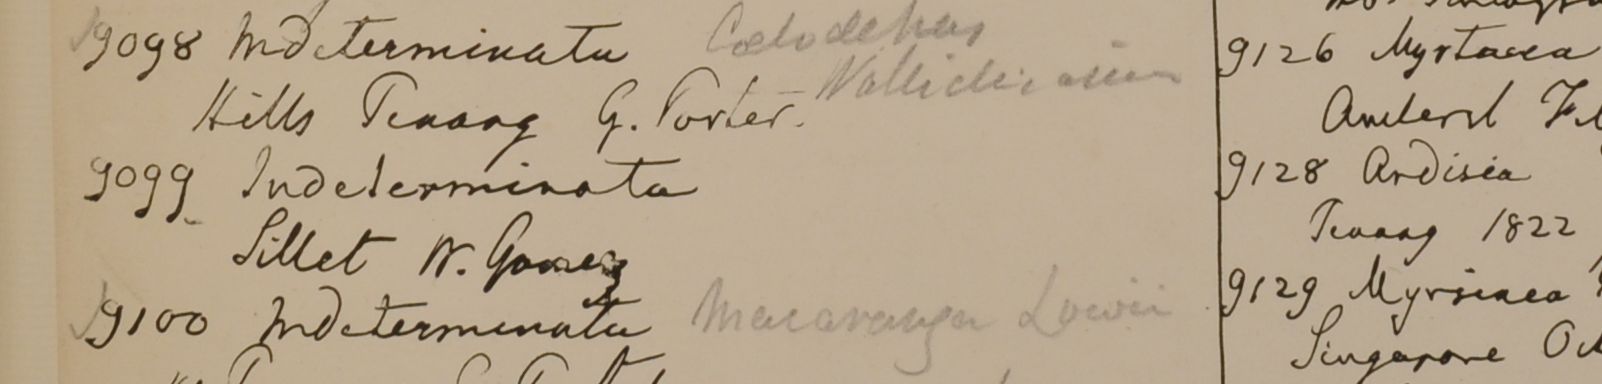 9098 Indeterminata Coelodepas
Wallichianum
Hills Penang G. Porter.
9099 Indeterminata
Sillet W. Gomez
9100 Indeterminata Macaranga Lowii
9126 Myrtacea
Amherst
9128 Ardisia
Penang 1822
9129 Myrsinea
Singapore